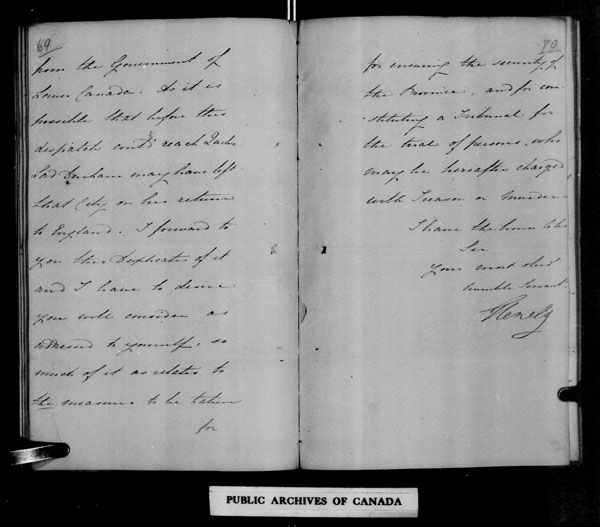 69
from the Government of
Lower Canada. As it is
possible that before this
despatch could reach Quebec
Lord Durham may have left
that City on his return
to England. I forward to
you this Duplicate of it
and I have to desire
you will consider as
addressed to yourself, so
much of it as relates to
the measures to be taken
for
70
for ensuring the security of
the Province, and for con
-stituting a Tribunal for
the trial of persons, who
may be hereafter charged
with Treason or Murder.
I have the honor to be
Sir
Your most obed't
humble Servant
Glenelg
PUBLIC ARCHIVES OF CANADA